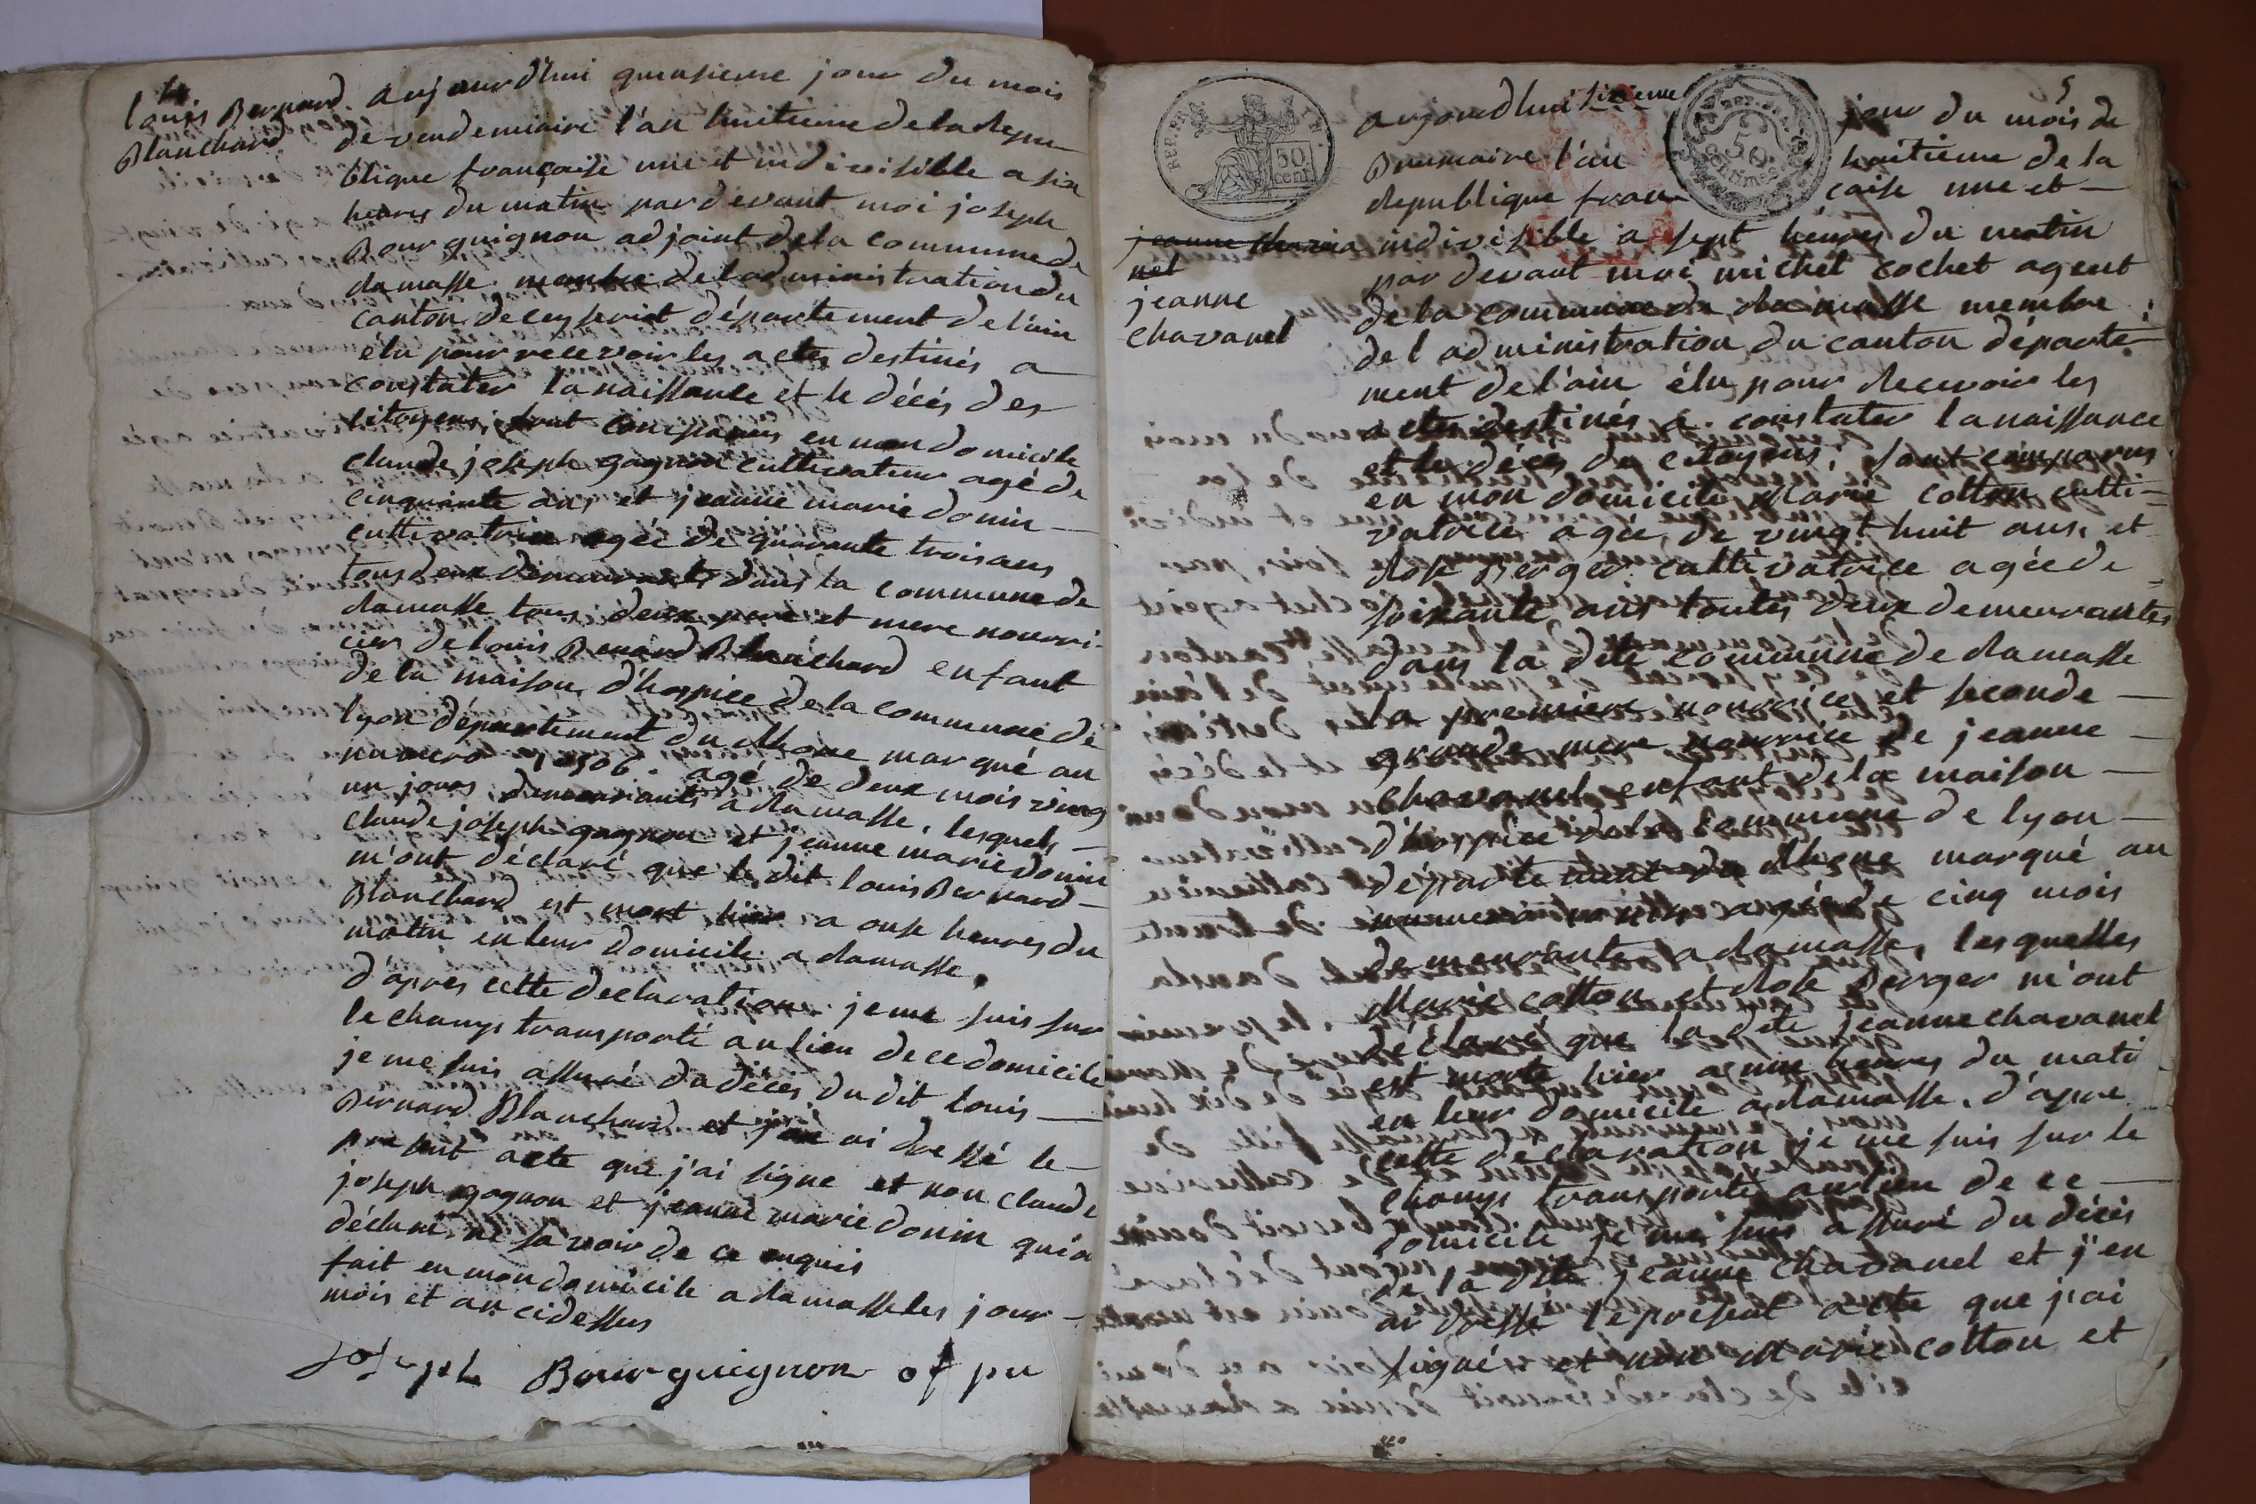 4
louis Bernard
Blanchard
aujourd'hui quinsieme jour du mois
de vendemiaire l'an huitieme de la Repu
blique française une et indivisible a six
heures du matin par devant moi joseph
Bourguignon adjoint de la commune de
damasse membre de l'administration du
canton de ceyseriat département de l'ain
elu pour recevoir les actes destinés a
constater la naissance et le décés des
citoyens, sont comparus en mon domicile
claude joseph gagnon cultivateur agé de
cinquante ans et jeanne marie donin
cultivatrice agée de quarante trois ans
tous deux demeurants dans la commune de
damasse tous deux pere et mere nourri-
cier de louis Benard Blanchard enfant
de la maison d'hospice de la commune de
lyon departement du Rhone marqué au
numero agé de deux mois vingt
un jours demeurants a damasse, lesquels
claude joseph gagnon et jeanne marie donin
m'ont déclaré que le dit louis Bernard
Blanchard est mort hier a onse heures du
matin en leur domicile a damasse.
d'apres cette declaration je me suis sur
le champs transporté au lieu de ce domicile
je me suis assuré du décés du dit louis
Bernard Blanchard et j'en ai dressé le
present acte que j'ai signé et non claude
joseph gagnon et jeanne marie donin qui a
déclaré ne savoir de ce enquis
fait en mon domicile a damasse les jour
mois et an cidessus
Joseph Bourguignon of pu
5
REP. FRA
50
cent.
50
Centimes
jeanne
nel
jeanne
chavanel
aujourdhui sixieme jour du mois de
Brumaire l'an huitieme de la
Republique francaise une et
indivisible a sept heures du matin
par devant moi michel cochet agent
de la commune de damasse membre
de l'administration du canton départe
ment de l'ain élu pour recevoir les
actes destinés a constater la naissance
et le décés des citoyens, sont comparus
en mon domicile Marie cotton culti-
vatrice agée de vingt huit ans, et
Rose Berger cultivatrice agée de
soixante ans toutes deux demeurantes
dans la dite commune de damasse
la premiere nourrice et seconde
grande mere nourrice de jeanne
chavanel enfant de la maison
d'hospice de la commune de lyon
département du Rhone marqué au
numero agée de cinq mois
demeurante a damasse, lesquelles
Marie cotton et Rose Berger m'ont
déclaré que la dite jeanne chavanel
est morte hier a heures du mati
en leur domicile a damasse, d'apre
cette declaration je me suis sur le
champs transporté au lieu de ce
domicile je me suis assuré du décés
de la dite jeanne chavanel et j'en
ai dressé le présent acte que j'ai
signé et non Marie cotton et